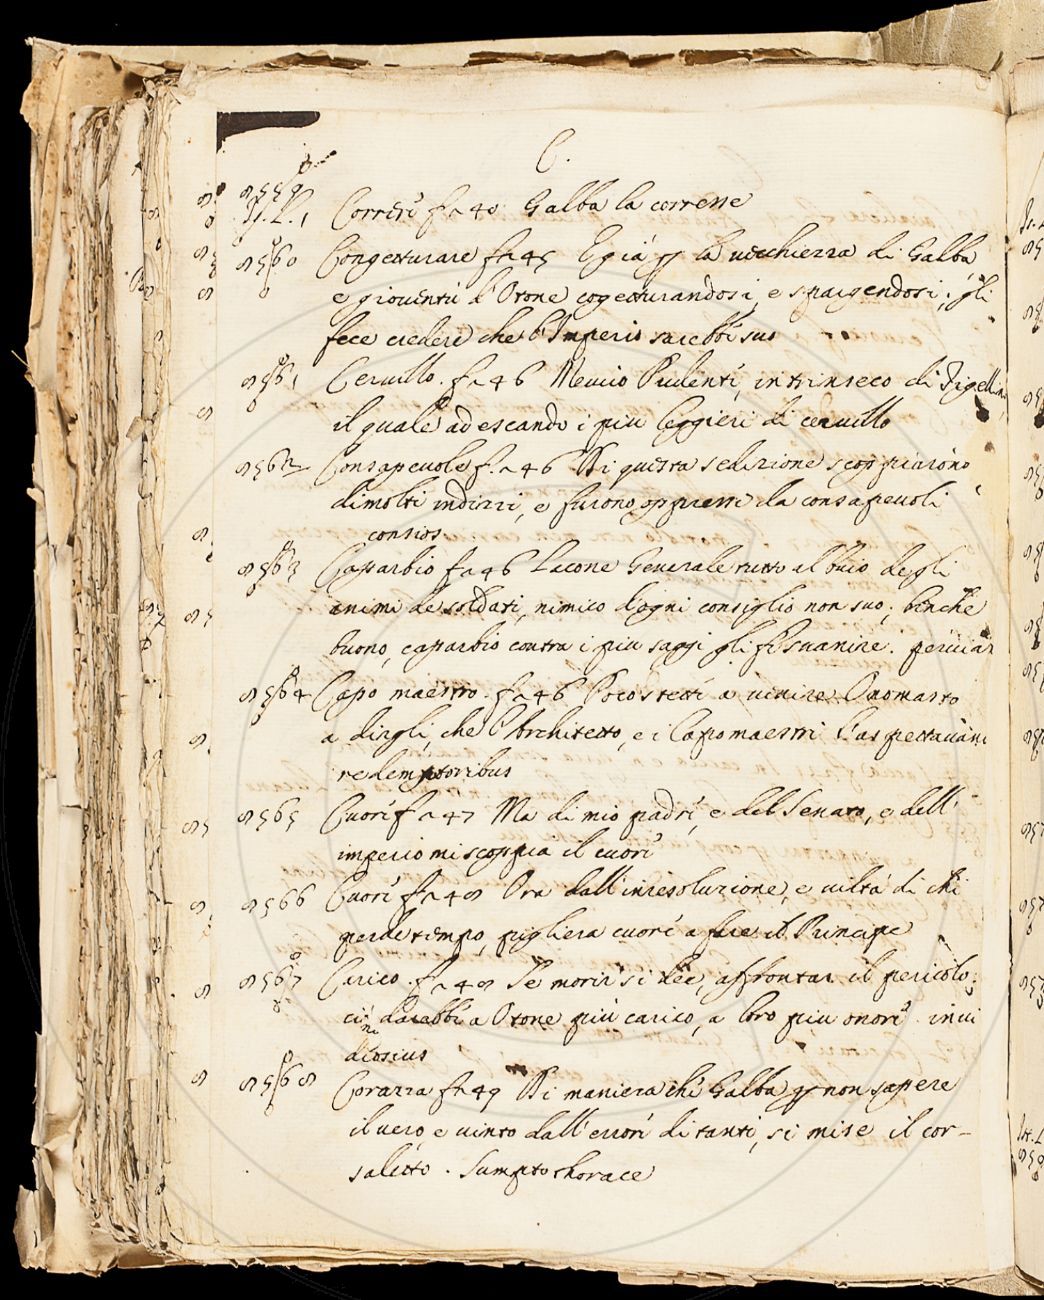 C.
8559
St. L. 1 Correre f. 40 Galba la corresse
8560 Congetturare f. 45 E già p la vecchiezza di Galba
e gioventù d'Otone cogetturandosi, e spargendosi, gli
fece credere che l'Imperio sarebbe suo
8561 Cervello. f. 46 Mevio Pudente, intrinseco di Tigellino,
il quale adescando i piu leggieri di cervello
8562 Consapevole f. 46 Di questa sedizione scoppiarono
dimolti indizzi, e furono oppressi da consapevoli
consios
8563 Caparbio f. 46 Lacone Generale tutto al buio degli
animi de soldati, nimico d'ogni consiglio non suo, benche
buono, caparbio contra i piu saggi gli fe svanire.
8564 Capo maestro. f. 46 Poco stette a venire Onomasto
a dirgli, che l'Architetto, e i Capomaestri l'aspettavano
redemptoribus
8565 Cuore f. 47 Ma di mio padre, e del Senato, e dell'
imperio mi scoppia il cuore
8566 Cuore f. 48 Ora dall'inresoluzione, e viltà di chi
perde tempo, pigliera cuore a fare il Principe
8567 Carico. f. 48 Se morir si dee, affrontar il pericolo;
ciò darebbe a Otone più carico, a loro piu onore. invi
diosius
8568 Corazza f. 49 Di maniera che Galba p non sapere
il vero, e vinto dall'errore di tanti, si mise il cor-
saletto. Sumpto thorace